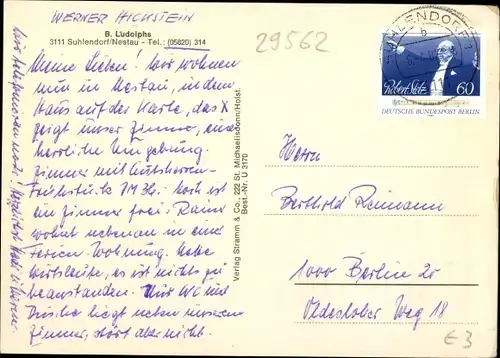 WERNER HICKSTEIN
B. Ludolphs
3111 Suhlendorf/Nestau - Tel.: (05820) 314
Meine Lieben! Wir wohnen
nun in Nestau, in dem
Haus auf der Karte, das X
zeigt unser Zimmer, eine
herrliche Umgebung.
Zimmer mit Gutsherren-
Frühstück DM 30,- Noch ist
ein Zimmer frei. Rainer
wohnt nebenan in einer
Ferien-Wohnung. Nette
Wirtsleute, es ist nichts zu
beanstanden. Nur WC und
Dusche liegt neben unserem
Zimmer, stört aber nicht.
Wir telefonieren noch! Herzlichst
Verlag Stramm & Co., 222 St. Michaelisdonn/Holst.
Best.-Nr. U 3170
29562
SUHLENDORF
Robert Stolz
60
DEUTSCHE BUNDESPOST BERLIN
Herrn
Berthold Reimann
1000 Berlin 20
Oldesloher Weg 18
E3